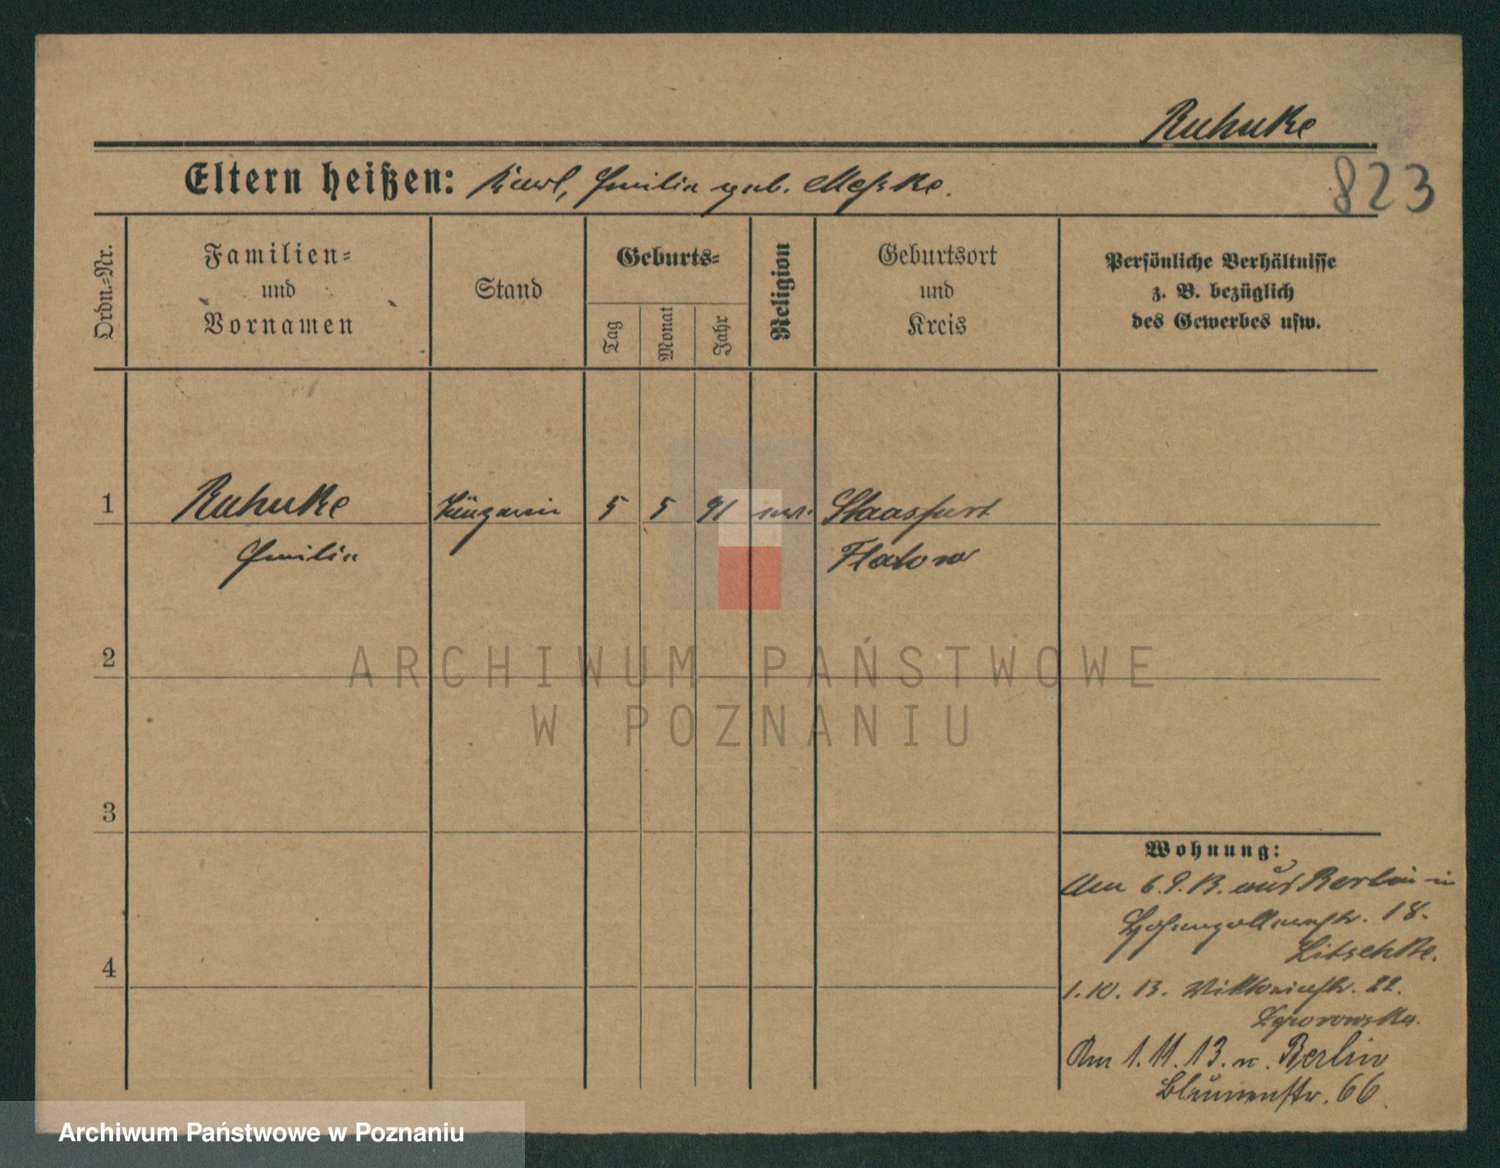 Ruhnke
823
Eltern heißen: Karl, Emilie geb. Meske.
Ordn.=Nr.
Familien=
und
Vornamen
Stand
Geburts=
Tag
Monat
Jahr
Religion
Geburtsort
und
Kreis
Persönliche Verhältnisse
z. B. bezüglich
des Gewerbes usw.
1
Ruhnke
5 5 91
Emilie
Flatow
2
3
4
Wohnung:
Am 6.9.13. aus Berlin in
Hohenzollernstr. 18.
Litschke.
1.10.13. Viktoriastr. 22.
Am 1.11.13. n. Berlin
Blumenstr. 66.
ARCHIWUM PAŃSTWOWE
W POZNANIU
Archiwum Państwowe w Poznaniu